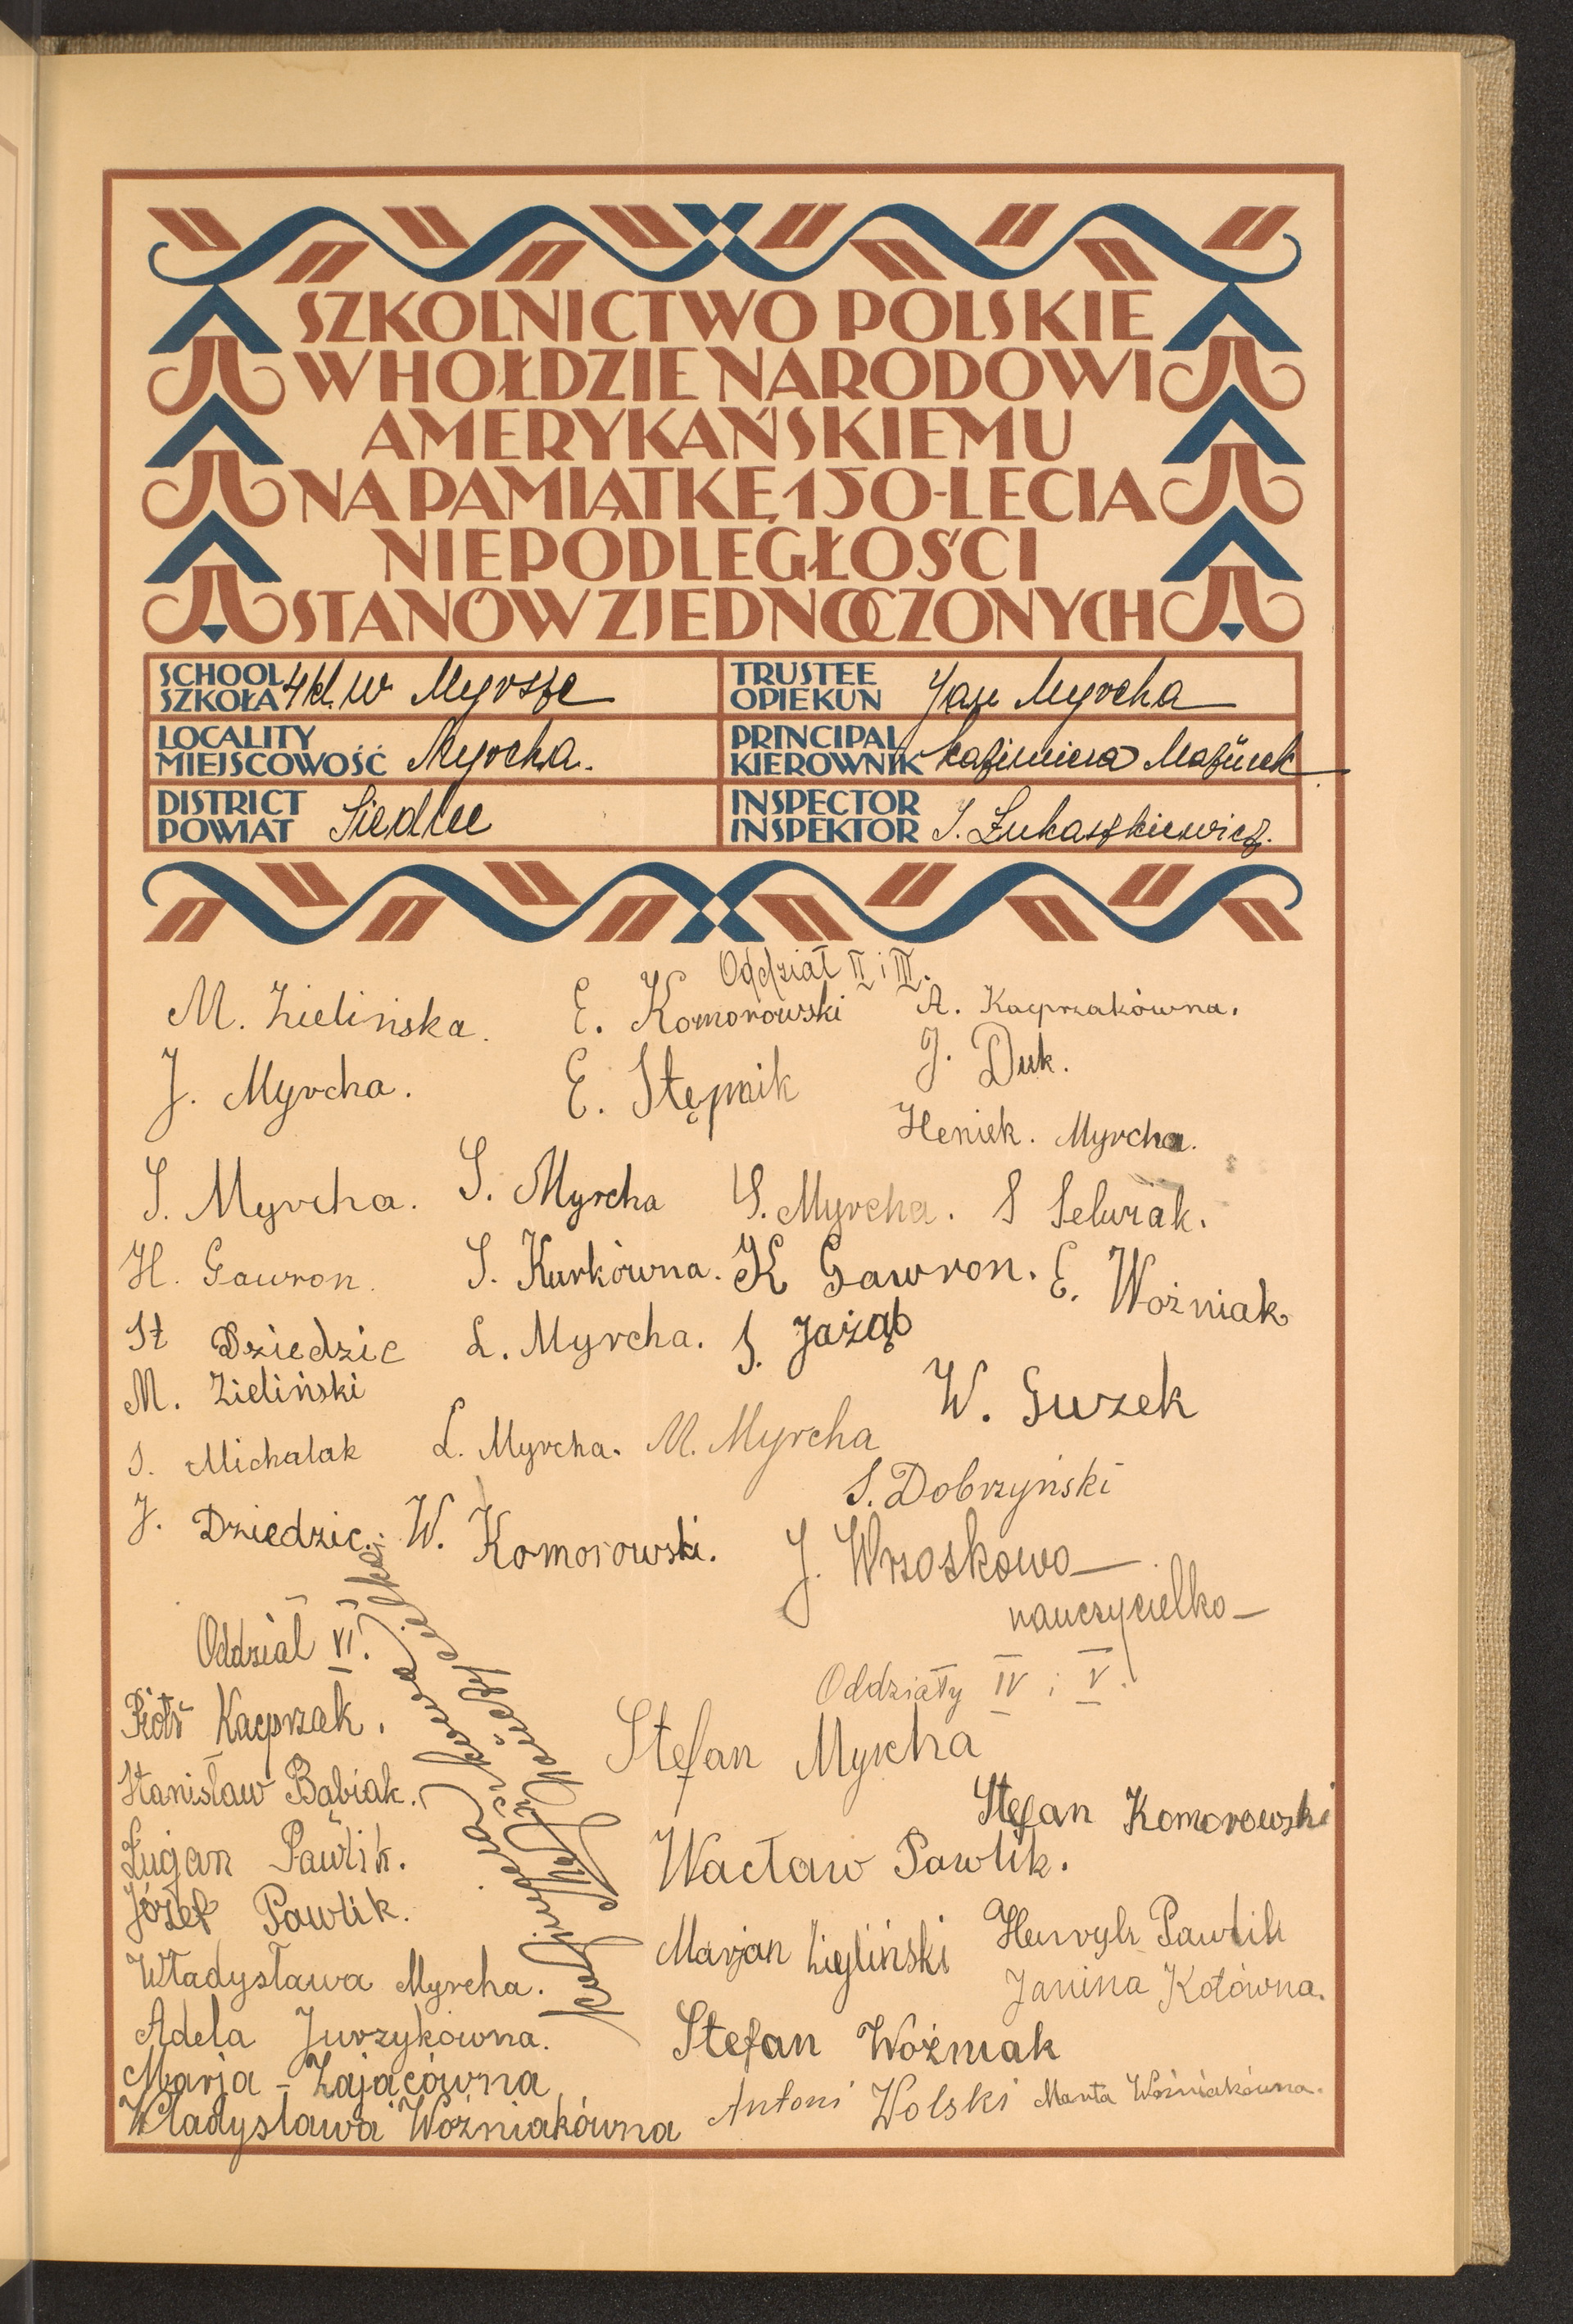 SZKOLNICTWO POLSKIE
W HOŁDZIE NARODOWI
AMERYKAŃSKIEMU
NA PAMIĄTKĘ 150-LECIA
NIEPODLEGŁOŚCI
STANÓW ZJEDNOCZONYCH
SCHOOL
SZKOŁA 4 kl. w Myrsze
TRUSTEE
OPIEKUN Jan Myrcha
LOCALITY
MIEJSCOWOŚĆ Myrcha.
PRINCIPAL
KIEROWNIK Kazimiera Mazurek
DISTRICT
POWIAT Siedlce
INSPECTOR
INSPEKTOR J. Łukaszkiewicz.
Oddział II i III.
M. Zielińska. E. Komorowski A. Kacprzakówna.
J. Myrcha. E. Stępnik J. Duk.
Heniek. Myrcha.
S. Myrcha. S. Myrcha S. Myrcha. S
H. Gawron. S. Kurkówna. K Gawron. E. Woźniak
St Dziedzic L. Myrcha. J. Jażąb
M. Zieliński W. Guzek
S. Michalak L. Myrcha. M. Myrcha
S. Dobrzyński
J. Dziedzic. W. Komorowski. J. Wrzoskowa
nauczycielka
Oddział VI.
Piotr Kacprzak.
Stanisław Babiak.
Eugjan Pawlik.
Józef Pawlik.
Władysława Myrcha.
Adela Jurzykówna.
Marja - Zającówna
Władysława Woźniakówna
Kazimiera
Oddziały IV i V.
Stefan Myrcha
Stefan Komorowski
Wacław Pawlik.
Marjan Zieliński Henryk Pawlik
Janina Kotówna.
Stefan Woźniak
Antoni Wolski Marta Woźniakówna.